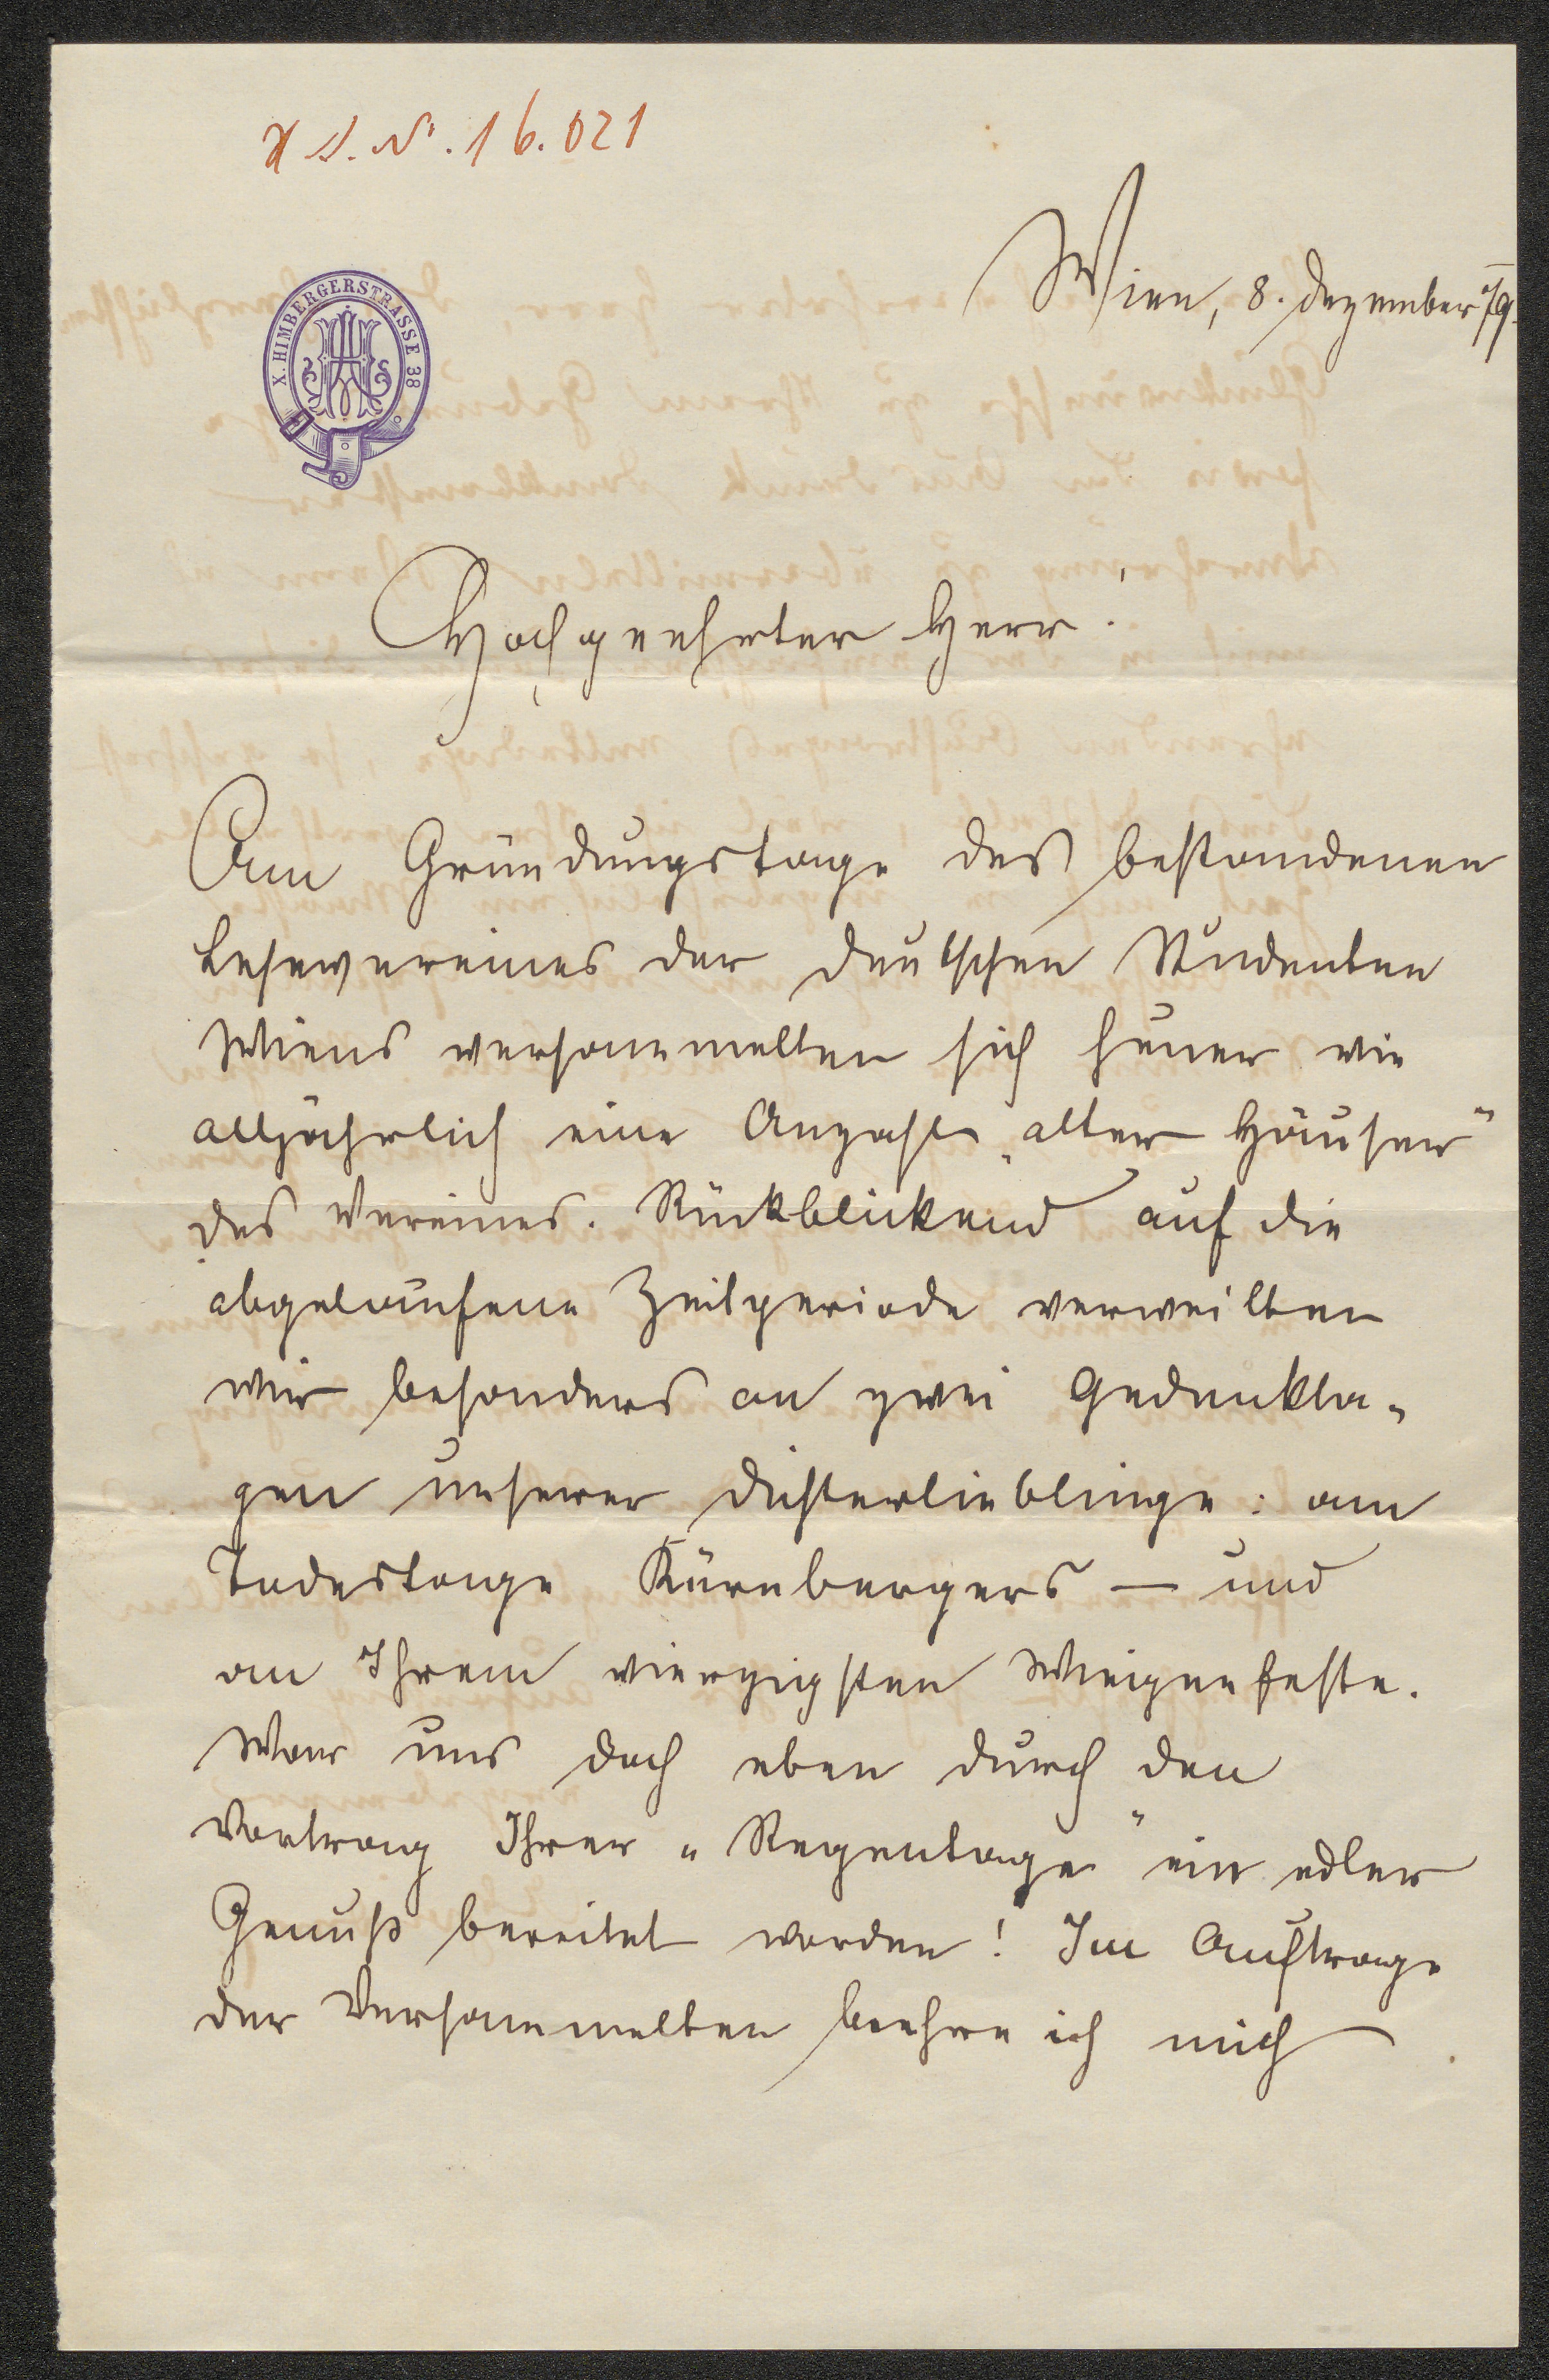 H S. N. 16.021
X. HIMBERGERSTRASSE 38
Wien, 8. Dezember 79.
Hochgeehrter Herr!
Am Gründungstage des bestandenen
Lesevereines der deutschen Studenten
Wiens versammelten sich heuer wie
alljährlich eine Anzahl „alter Häuser"
des Vereines. Rückblickend auf die
abgelaufene Zeitperiode verweilten
wir besonders an zwei Gedenkta-
gen unserer Dichterlieblinge: am
Todestage Kürnbergers — und
an Ihrem vierzigsten Wiegenfeste.
War uns doch eben durch den
Vortrag Ihrer „Regentage" ein edler
Genuß bereitet worden! Im Auftrage
der Versammelten beehre ich mich